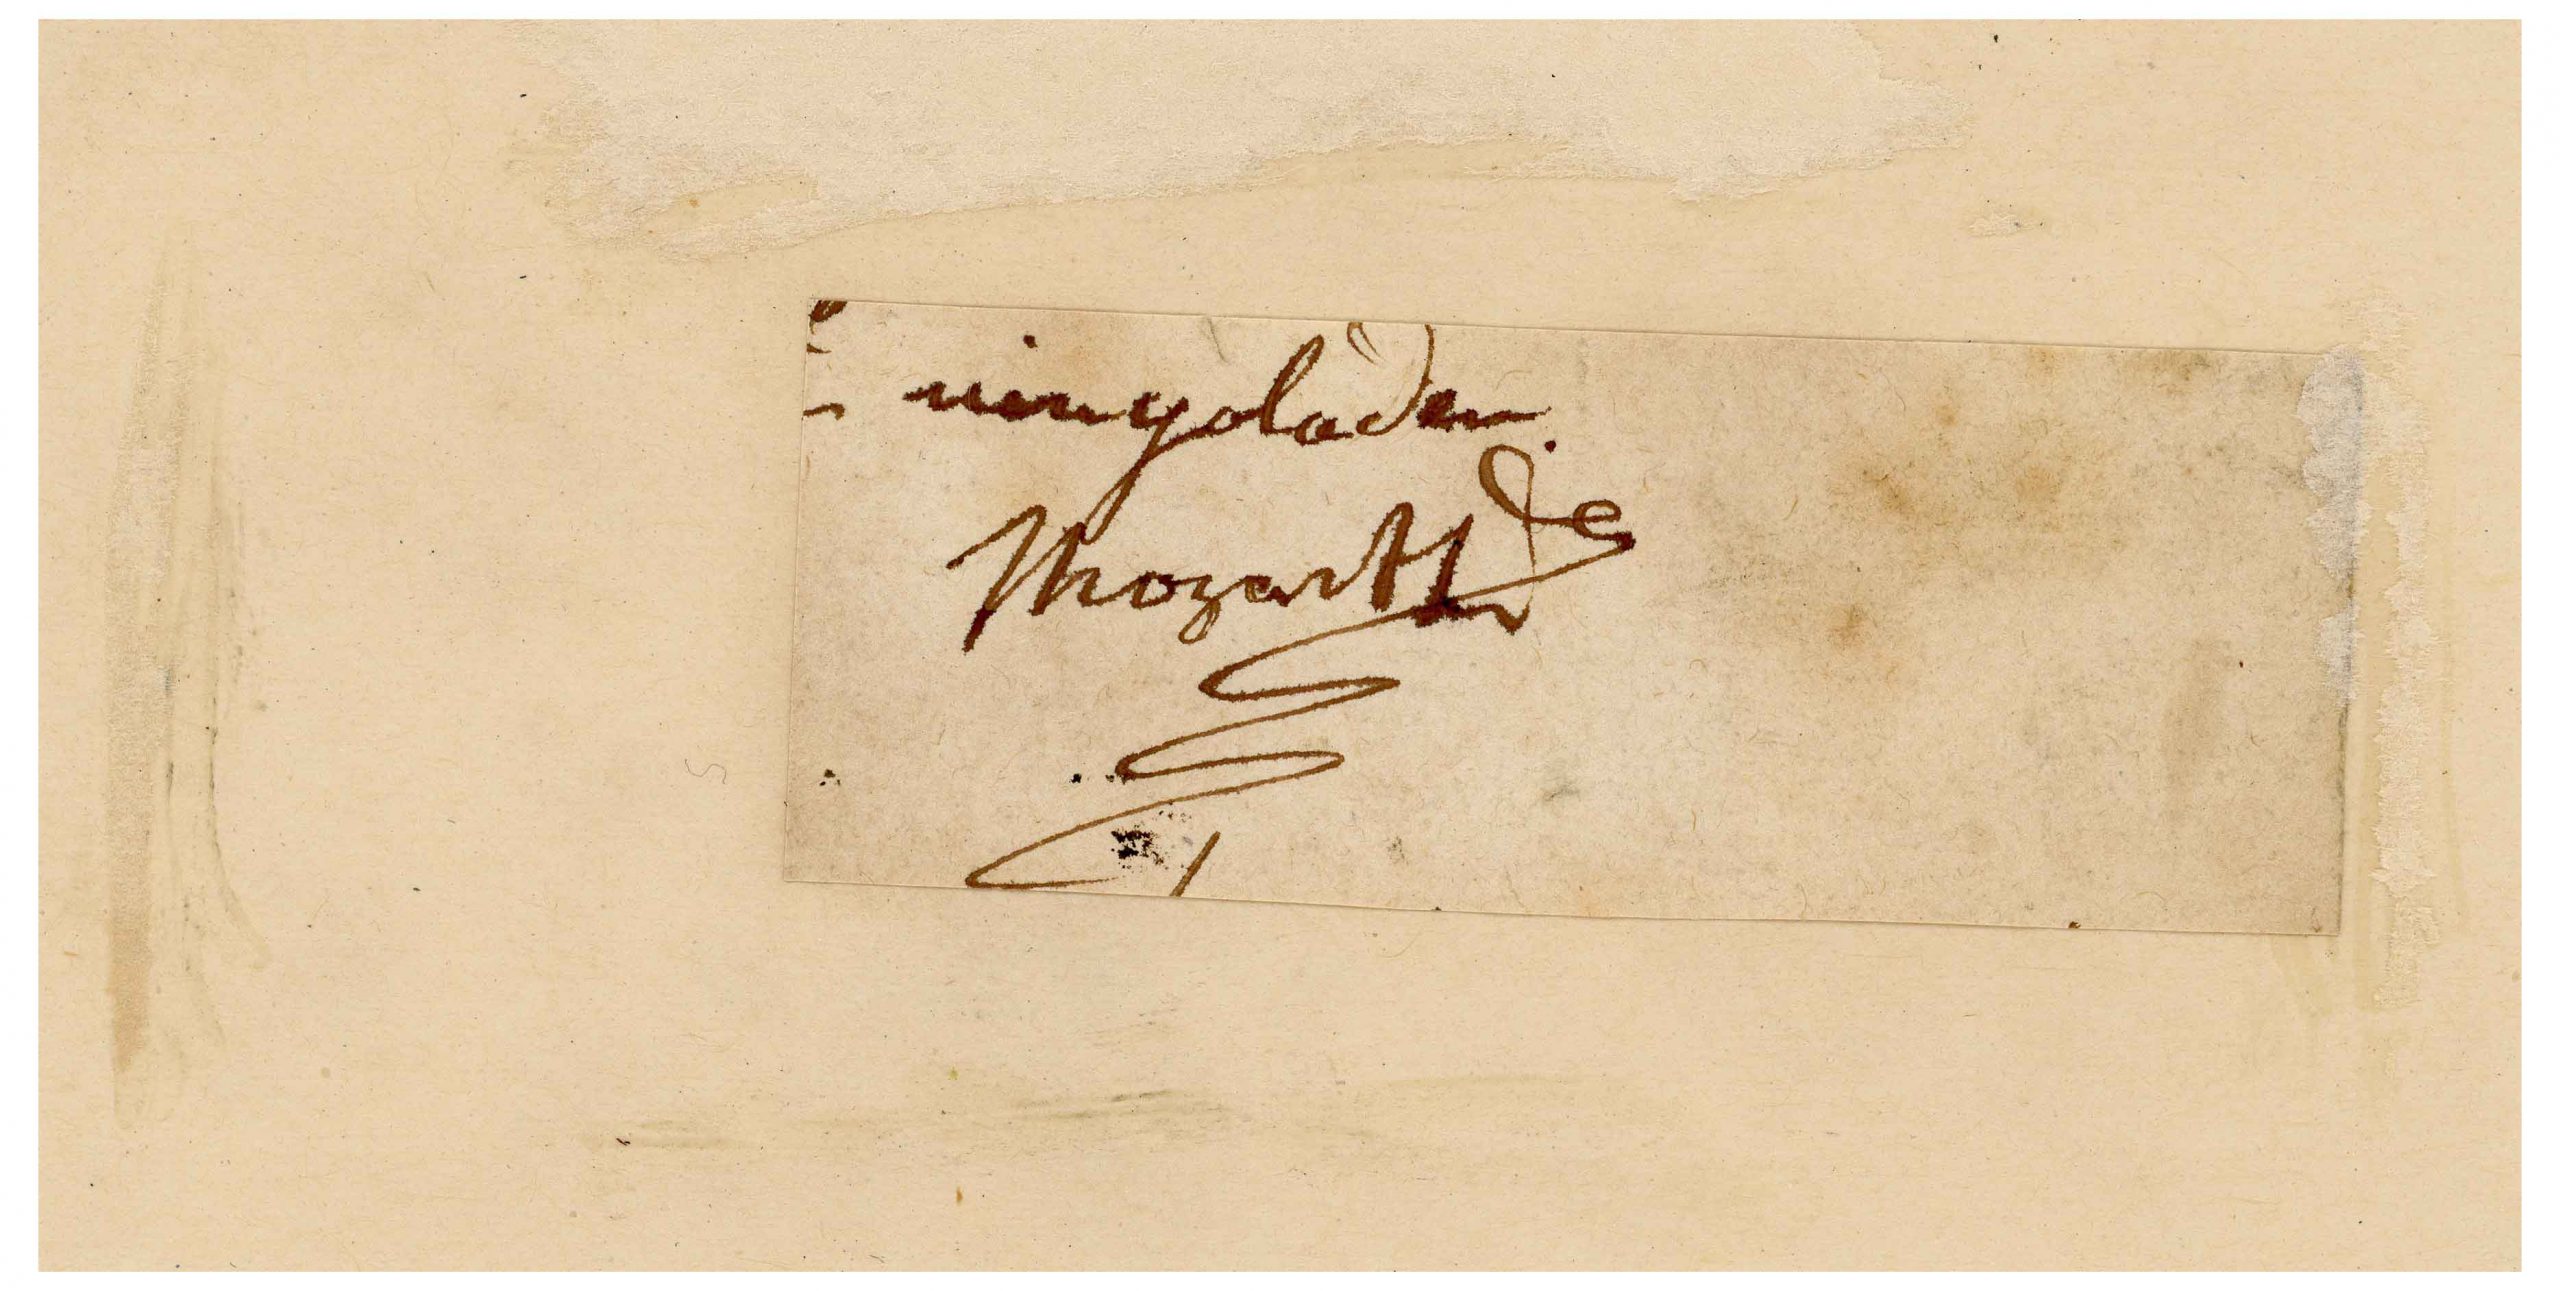 eingeladen.
Mozart